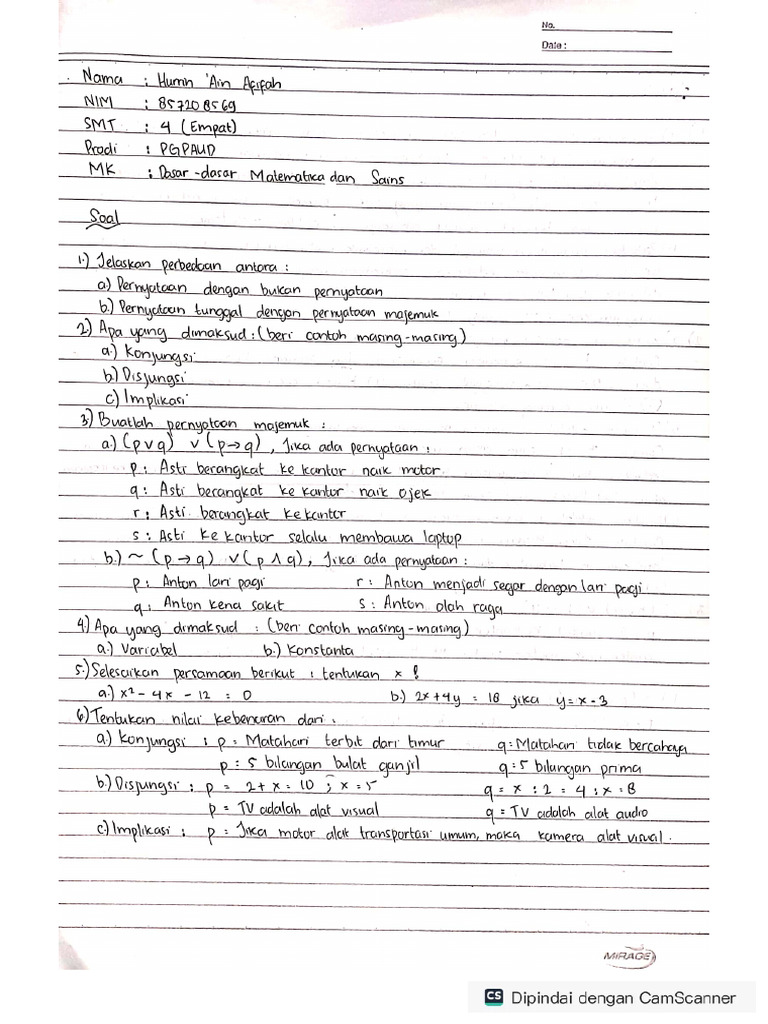 No.
Date :
Nama : Humn 'Ain Afifah
NIM : 857208569
SMT : 4 (Empat)
Prodi : PGPAUD
MK : Dasar-dasar Matematika dan Sains
Soal
1.) Jelaskan perbedaan antara :
a) Pernyataan dengan bukan pernyataan
b.) Pernyataan tunggal dengan pernyataan majemuk
2) Apa yang dimaksud : (beri contoh masing-masing)
a.) Konjungsi
b.) Disjungsi
c) Implikasi
3.) Buatlah pernyataan majemuk :
a.) (p ∨ q) ∨ (p → q), Jika ada pernyataan :
p : Asti berangkat ke kantor naik motor
q : Asti berangkat ke kantor naik ojek
r : Asti berangkat ke kantor
s : Asti ke kantor selalu membawa laptop
b.) ~ (p → q) ∨ (p ∧ q), Jika ada pernyataan :
p : Anton lari pagi r : Anton menjadi segar dengan lari pagi
q : Anton kena sakit s : Anton olah raga
4.) Apa yang dimaksud : (beri contoh masing-masing)
a.) Variabel b.) Konstanta
5.) Selesaikan persamaan berikut : tentukan x !
a.) x² - 4x - 12 = 0 b.) 2x + 4y = 18 jika y = x - 3
6) Tentukan nilai kebenaran dari :
a.) Konjungsi : p = Matahari terbit dari timur q : Matahari tidak bercahaya
p : 5 bilangan bulat ganjil q : 5 bilangan prima
b.) Disjungsi : p = 2 + x = 10 ; x = 5 q = x : 2 = 4 ; x = 8
p = TV adalah alat visual q = TV adalah alat audio
c) Implikasi : p = Jika motor alat transportasi umum, maka kamera alat visual.
MIRAGE
CS Dipindai dengan CamScanner